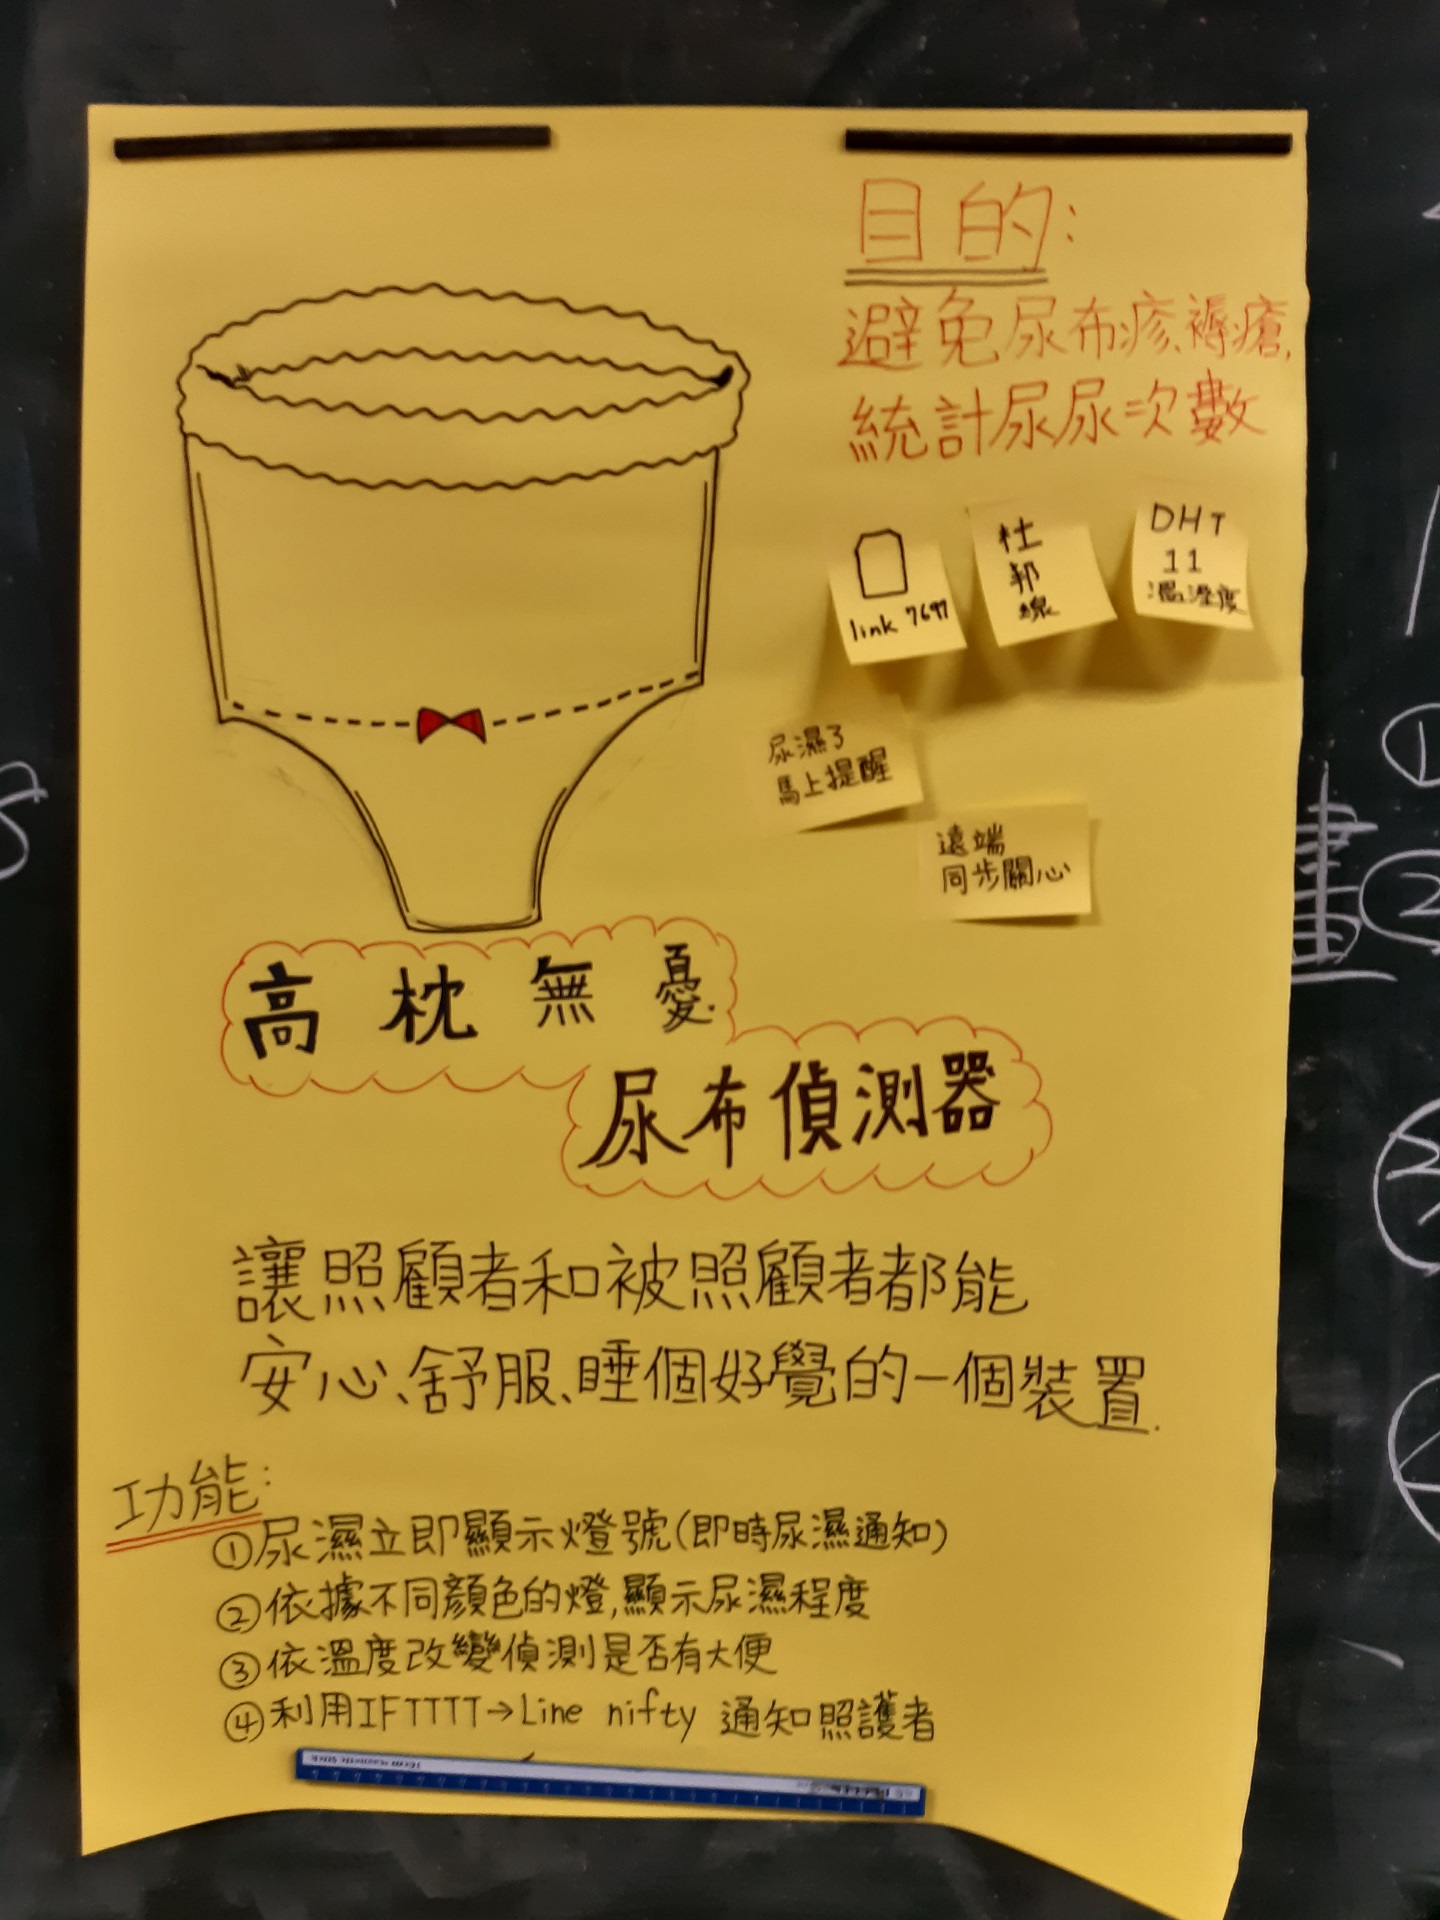 目的:
避免尿布疹、褥瘡,
統計尿尿次數
link 7697
杜
邦
線
DHT
11
溫溼度
尿濕了
馬上提醒
遠端
同步關心
高枕無憂
尿布偵測器
讓照顧者和被照顧者都能
安心、舒服、睡個好覺的一個裝置.
功能:
①尿濕立即顯示燈號(即時尿濕通知)
②依據不同顏色的燈,顯示尿濕程度
③依溫度改變偵測是否有大便
④利用IFTTTT→Line nifty 通知照護者
畫
①
②